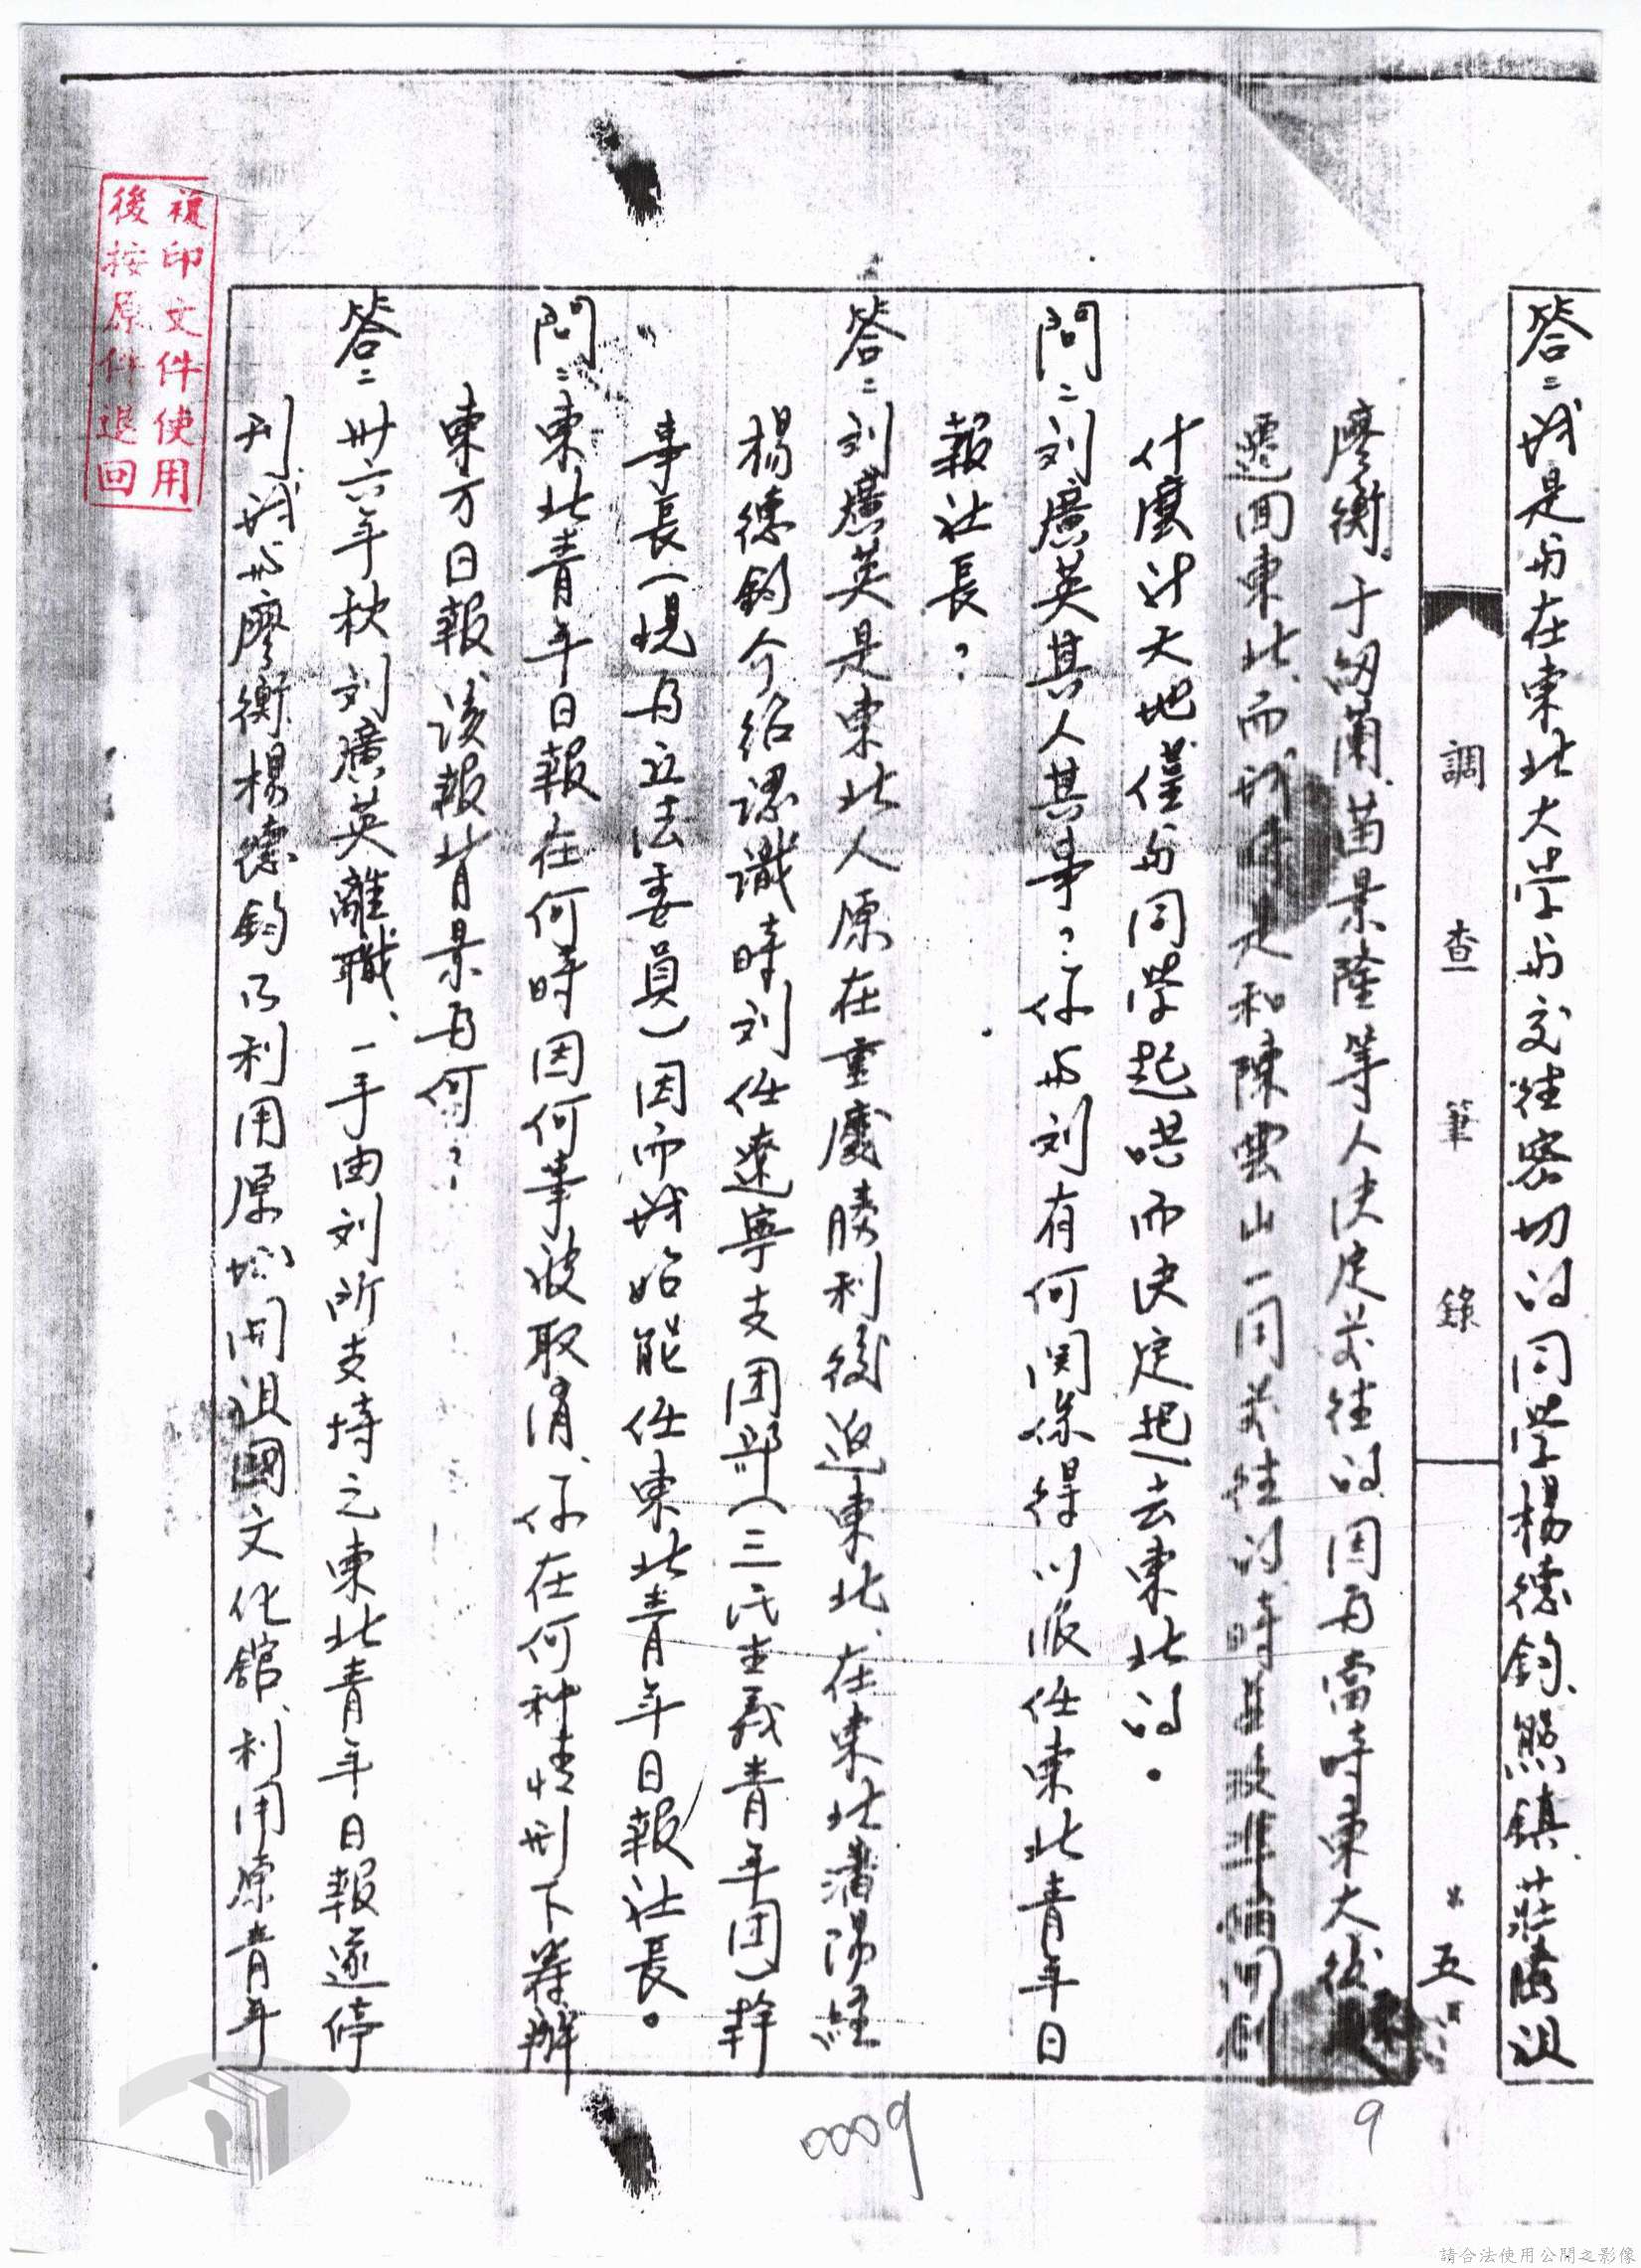 答：我是与在東北大学与交往密切的同学楊德鈞、熊鎮、莊
調查筆錄
五
廖衡、于幼甫、苗景隆等人決定前往的，因为當時東大
遷回東北，而我是和陳雲山一同前往的，時並没準備
什麼計天地僅与同学起哄而決定跑去東北的。
問：刘廣英其人其事？你与刘有何関係得以派任東北青年日
報社長？
答：刘廣英是東北人原在重慶勝利後返東北，在東北瀋陽經
楊德鈞介绍認識時刘任遼寧支団部（三民主義青年団）幹
事長（現为立法委員）因而我始能任東北青年日報社長。
問：東北青年日報在何時因何事被取消，你在何种情形下籌辦
東方日報，該報背景为何？
答：卅六年秋刘廣英離職，一手由刘所支持之東北青年日報遂停
刊，我与廖衡楊德鈞乃利用原 開設國文化館，利用原青年
0009
9
複印文件使用
後按原件退回
請合法使用公開之影像